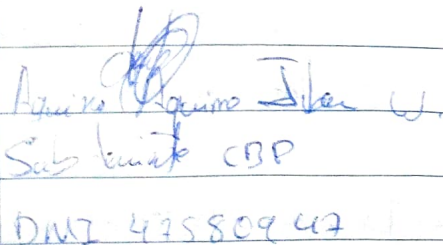 Aquino Aquino Jhon W.
Sub teniente CBP
DNI 47580947